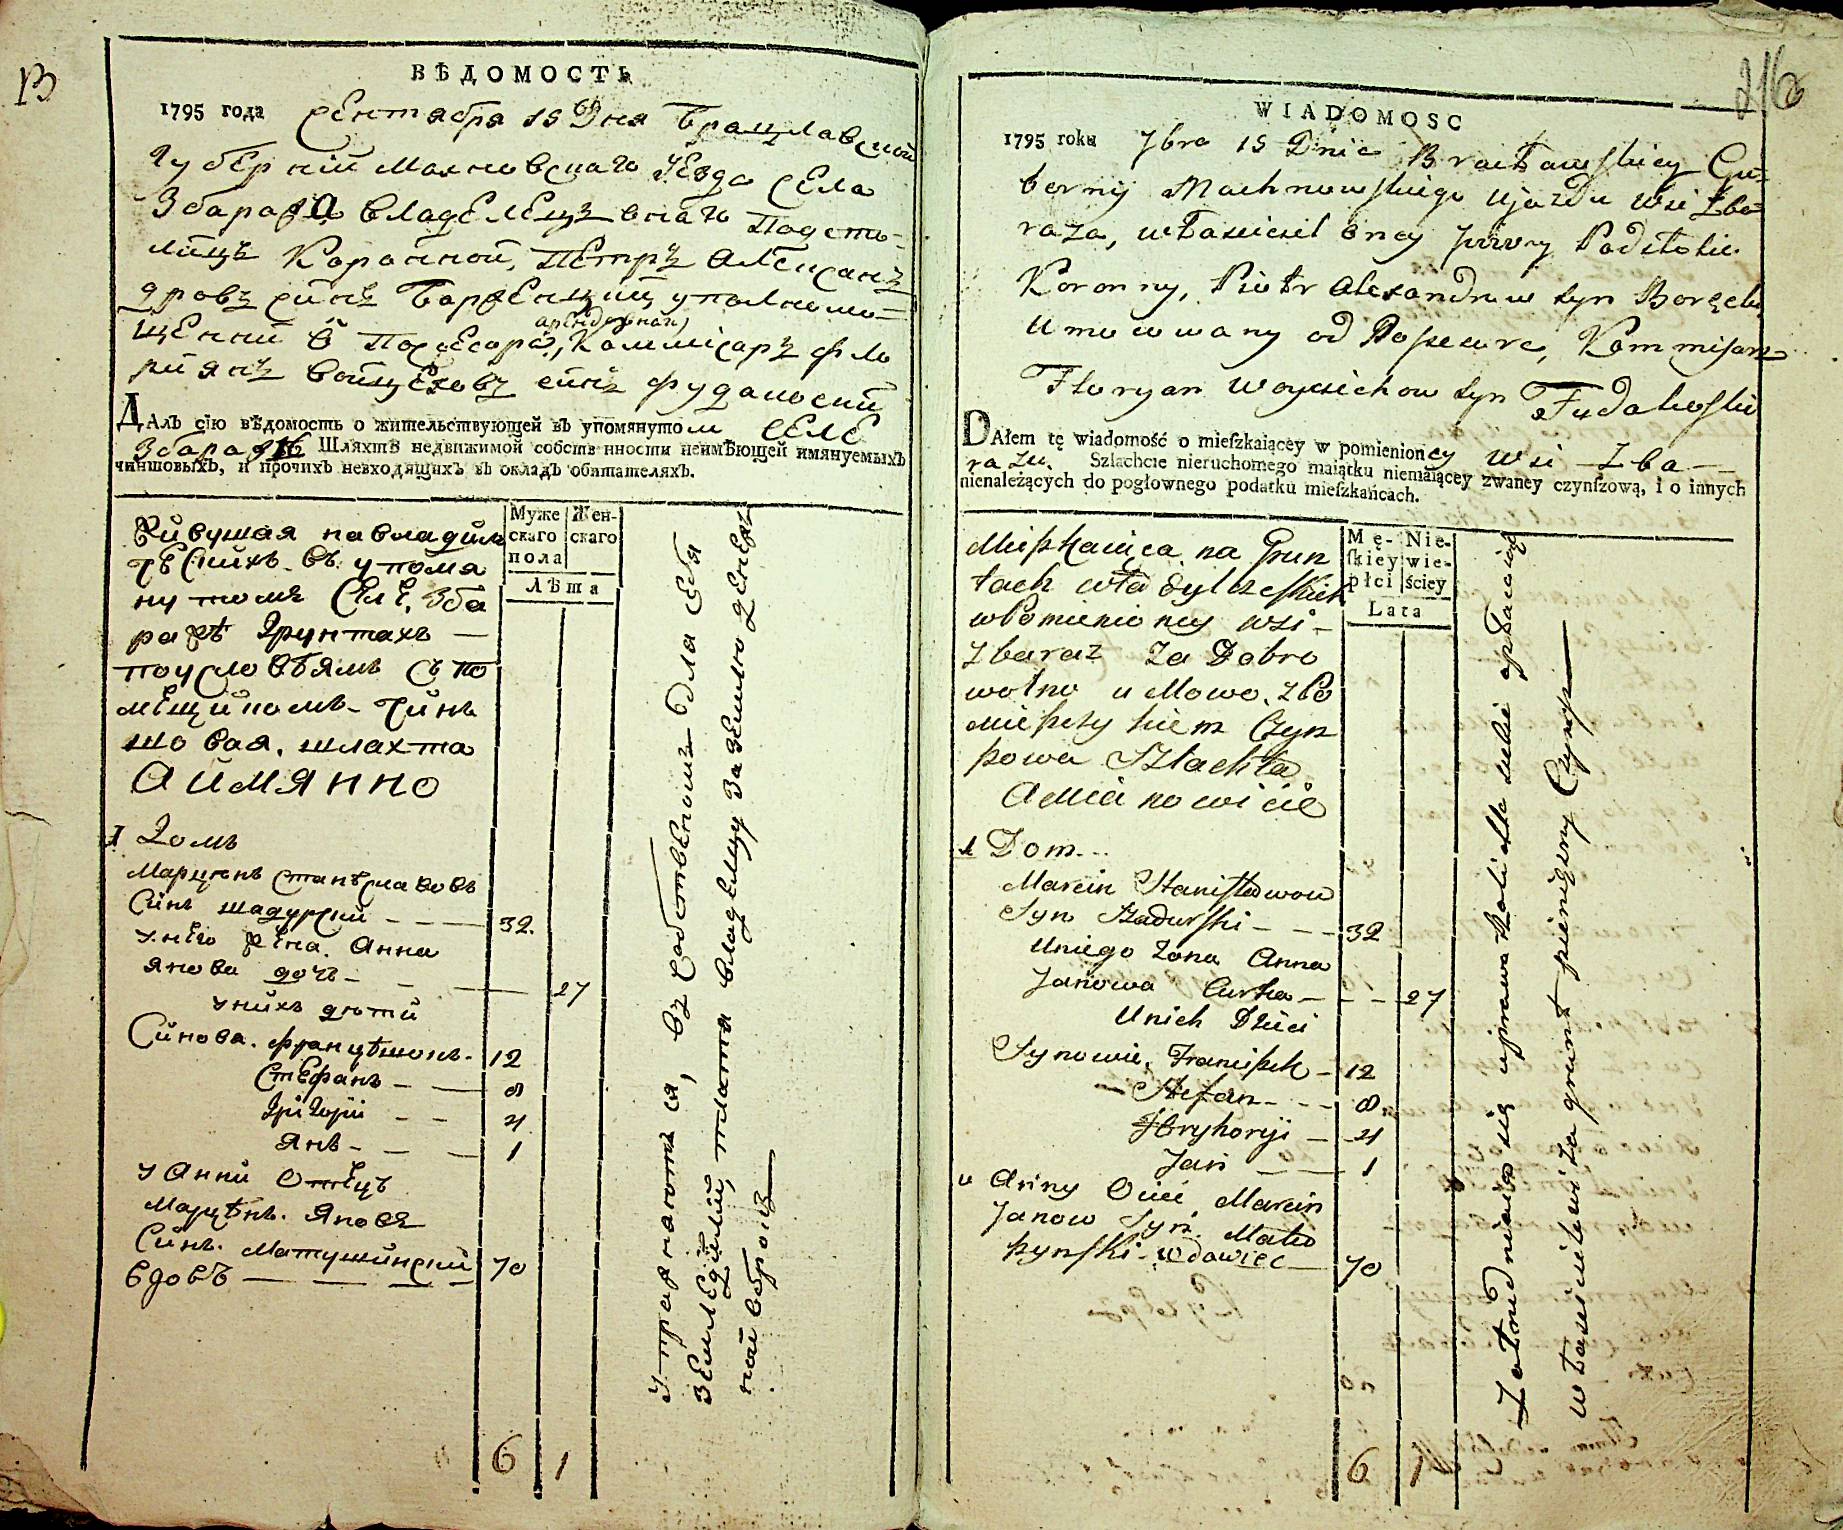 13
ВѢДОМОСТЬ
1795 года сентября 15 Дня Брацлавской
Губернiи Махновскаго уезда села
Збаража владелецъ онаго Подсто-
лицъ Коронной, Петръ Александ
ровъ синъ уполномо=
щенний ѿ Посесора, Коммисаръ Фло
арендовнаго
риянъ Войцеховъ синъ Фудаковский
ДАлъ сїю вѣдомость о жительствующей въ упомянутом селе
Збаражѣ Шляхтѣ недвижимой собственности неимѣющей имянуемыхъ
чиншовыхъ, и прочихъ невходящихъ въ окладъ обитателяхъ.
Муже Жен-
скаго скаго
пола
Лѣта
Живущая на владил
ческихъ въ упомя
нутомъ Селе, Зба
ражѣ грунтахъ —
по условѣямъ съ по
мещикомъ - Чинъ
шовая, шляхта
А ИМЯННО
1 Домъ
Марцѣнъ Станѣславовъ
Синъ Шадурский - - - 32.
У него жена Анна
Янова дочъ - - - 27
У нихъ дѣти
Синова. Францѣшокъ - 12
Стефанъ - — 8
Григорiй - - 4
Янъ - - — 1
У Анни Отецъ
Марцѣнъ. Яновъ
Синъ. Матушинский 70
вдовъ — — — —
6 1
Упражняются, въ собственномъ для себя
земледѣлiи, платя владелцу за землю денеж
ний оброкъ —
216
WIADOMOSC
1795 roku 7bra 15 Dnia Bracławskiey Gu=
berny Machnowskiego Ujazdu wsi Zba=
raża, własciciel oney Podstolic
Koronny, Piotr Alexandrow syn
Umocowany od Possesora, Kommisarz
Floryan Woyciechow syn Fudakoski
DAłem tę wiadomość o mieſzkaiącey w pomienioney wsi Zba—
rażu. Szlachcie nieruchomego maiątku niemaiącey zwaney czynſzową, i o innych
nienależących do pogłownego podatku mieſzkańcach.
Mę- Nie-
ſkiey wie-
płci ściey
Lata
Mieszkaiąca na Grun
tach władylczeskich
wpomienioney wsi -
Zbaraż za Dobro
wolną uMową, zPo
mieszczykiem Czyn
szowa Szlachta
AMianowicie
1 Dom - -
Marcin Stanisławow
Syn Szadurski - - - 32
Uniego Zona Anna
Janowa Curka - - - 27
Unich Dzieci
Synowie, Franciszek - 12
- Stefan - - - 8
Hryhoryi — 4
Jan — — 1
u Anny Ociec Marcin
Janow Syn Matu
szynski - wdowiec — 70
6 1
Zatrudniaią się uprawą Roli dla siebie opłacaiąc
włascicielowi za grunt pieniężny Czynsz —